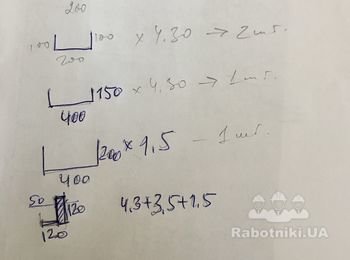 200
100 100 x 4.30 → 2 шт.
200
150 x 4.30 → 1 шт.
400
200 x 1,5 – 1 шт.
400
50 120 4,3+3,5+1,5
120
Rabotniki.UA